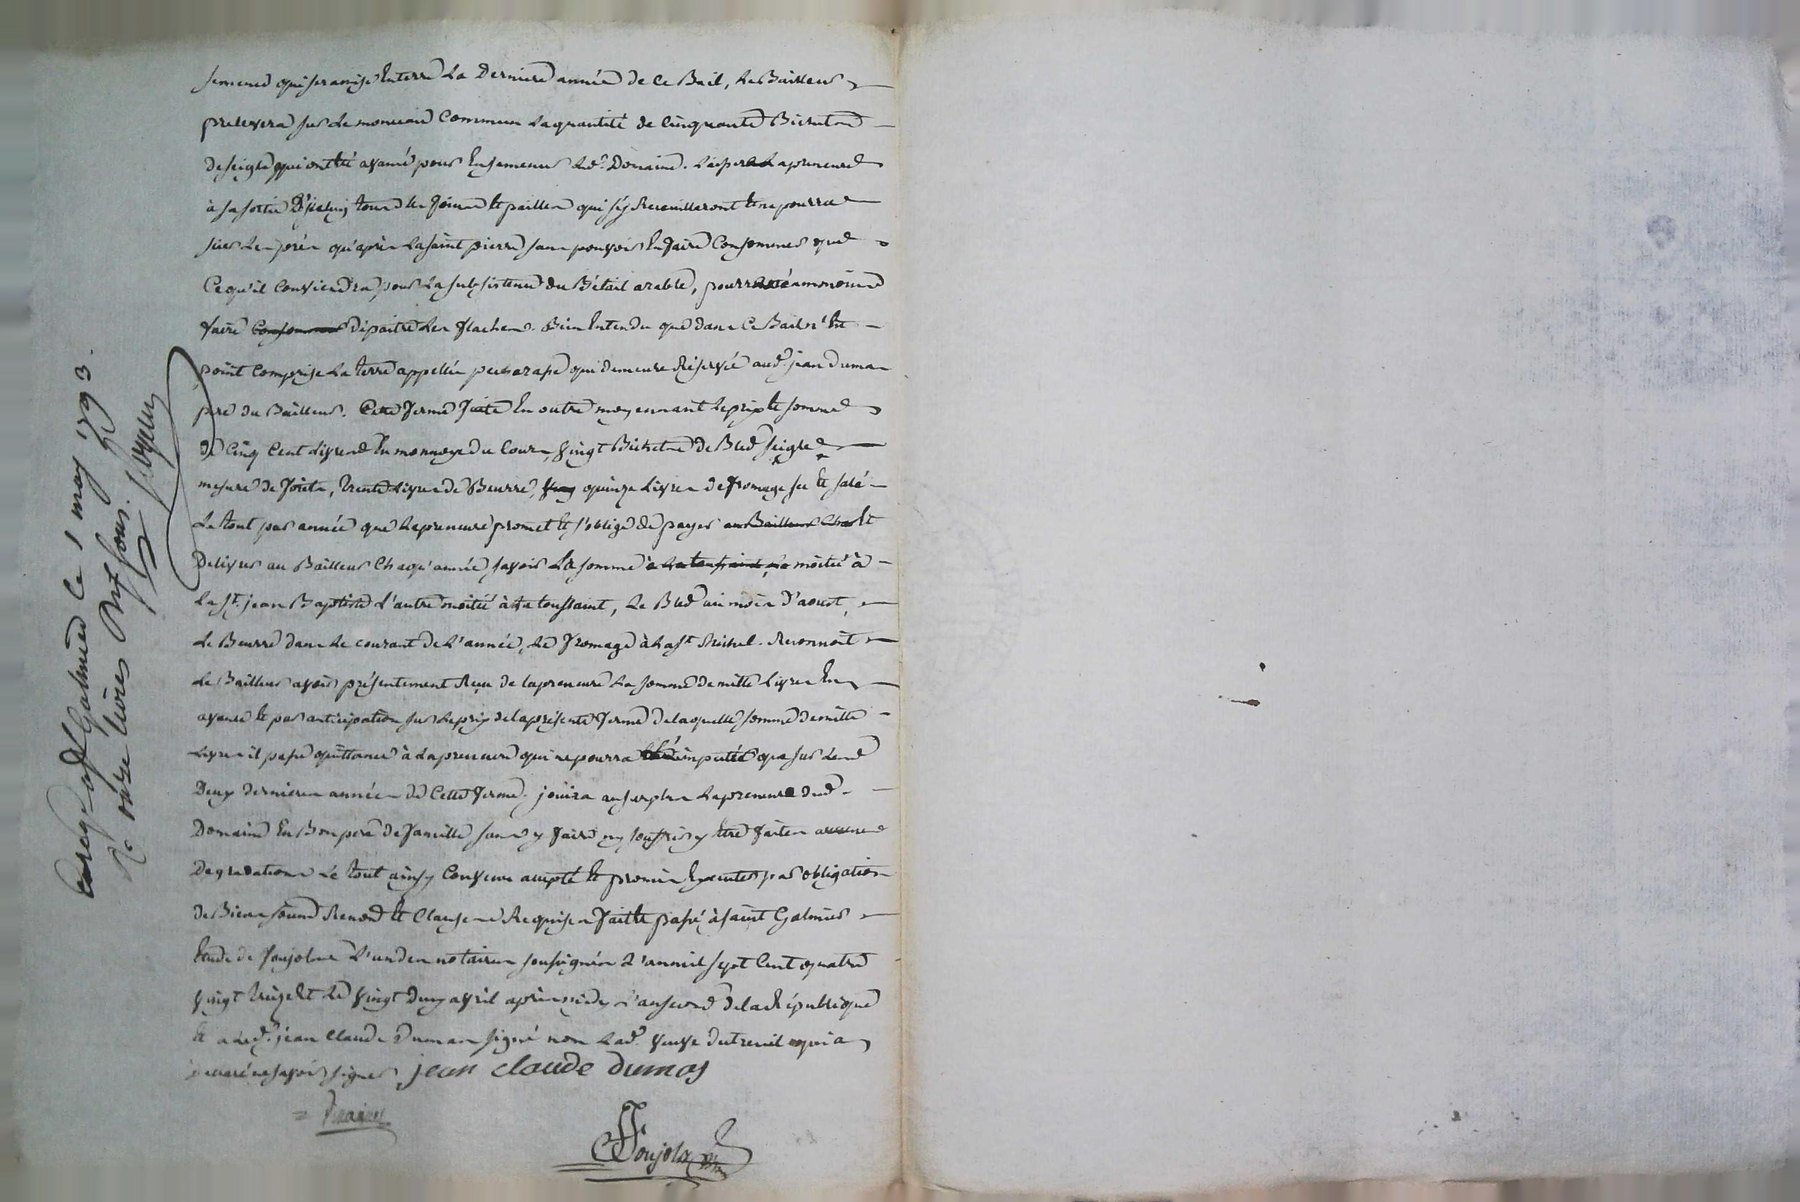 semence qui sera mise en terre La Derniere année de Ce Bail, Le Bailleur
prelevera sur Le monceau Commun La quantité de Cinquante Bichets
de seigle qui ont été avancé pour Ensemencer Led. Domaine. Laissera La preneure
à sa sortie D'icelui tous Les foins et pailles qui s'y Recueilleront et ne pourra
sur Les prés qu'après La saint pierre sans pouvoir En faire Consommer que
Ce qu'il Conviendra pour La subsistence du Bétail arable, pourra néammoins
faire dépaitre Les vaches. Bien Entendu que dans Ce Bail n'Est
point Comprise La terre appellée qui demeure Réservée aud. jean dumas
pere du Bailleur. Cette ferme faite En outre moyennant Le prix et somme
de Cinq Cent Livres En monnoye du Cours, vingt Bichets de Bled seigle
mesure de , trente Livres de Beurre, quinze Livres de fromage sec et salé
Le tout par année que La preneure promet et s'oblige de payer au Bailleur et
Delivrer au Bailleur Chaqu'année savoir La somme à La toussaint moitié à
La St. jean Baptiste L'autre moitié à La toussaint, Le Bled au mois D'aoust,
Le Beurre dans Le courant de L'année, Le fromage à La St. Michel. Reconnoit
Le Bailleur avoir présentement Reçu de La preneure La somme de mille Livres En
avance et par anticipation sur Le prix de La présente ferme de Laquelle somme de mille
Livres il passe quittance à La preneure qui ne pourra imputée que sur Les
Deux dernieres années de Cette ferme. jouira au surplus La preneure dud.
Domaine En Bon pere de famille sans y faire ny souffrir y Etre faites aucune
Degradations Le tout ainsy Convenu accepté et promis Executer par obligation
de Biens soumis Renon. et Clauses Requises fait et passé à saint Galmier
Etude de Soujolas L'un des notaires soussignés L'an mil sept Cent quatre
vingt treize et Le vingt deux avril après midy L'an second de La République
Et a Led. jean Claude Dumas signé non Lad. veuve dutreuil qui a
declaré ne savoir signer jean claude dumas
Soujolas
Enreg. à St. Galmier le 1 may 1793.
Rc. onze livres sous.